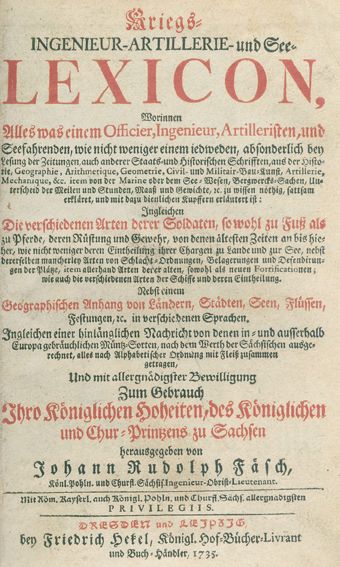 Kriegs-
INGENIEUR-ARTILLERIE- und See-
LEXICON,
Worinnen
Alles was einem Officier, Ingenieur, Artilleristen, und
Seefahrenden, wie nicht weniger einem iedweden, absonderlich bey
Lesung der Zeitungen, auch anderer Staats- und Historischen Schrifften, aus der Histo-
rie, Geographie, Arithmetique, Geometrie, Civil- und Militair-Bau-Kunst, Artillerie,
Mechanique, &c. item von der Marine oder dem See-Wesen, Bergwercks-Sachen, Un-
terscheid der Meilen und Stunden, Maaß und Gewichte, ꝛc. zu wissen nöthig, sattsam
erkläret, und mit dazu dienlichen Kupffern erläutert ist:
Ingleichen
Die verschiedenen Arten derer Soldaten, sowohl zu Fuß als
zu Pferde, deren Rüstung und Gewehr, von denen ältesten Zeiten an bis hie-
her, wie nicht weniger deren Eintheilung ihrer Chargen zu Lande und zur See, nebst
dererselben mancherley Arten von Schlacht-Ordnungen, Belagerungen und Defendirun-
gen der Plätze, item allerhand Arten derer alten, sowohl als neuen Fortificationen;
wie auch die verschiedenen Arten der Schiffe und deren Eintheilung.
Nebst einem
Geographischen Anhang von Ländern, Städten, Seen, Flüssen,
Festungen, ꝛc. in verschiedenen Sprachen.
Ingleichen einer hinlänglichen Nachricht von denen in- und ausserhalb
Europa gebräuchlichen Müntz-Sorten, nach dem Werth der Sächsischen ausge-
rechnet, alles nach Alphabetischer Ordnung mit Fleiß zusammen
getragen,
Und mit allergnädigster Bewilligung
Zum Gebrauch
Ihro Königlichen Hoheiten, des Königlichen
und Chur-Printzens zu Sachsen
herausgegeben von
Johann Rudolph Fäsch,
Königl. Pohln. und Churfl. Sächsis. Ingenieur-Obrist-Lieutenant.
Mit Röm. Kayserl. auch Königl. Pohln. und Churfl. Sächs. allergnädigsten
PRIVILEGIIS.
DRESDEN und LEIPZIG,
bey Friedrich Hekel, Königl. Hof-Bücher-Livrant
und Buch-Händler, 1735.